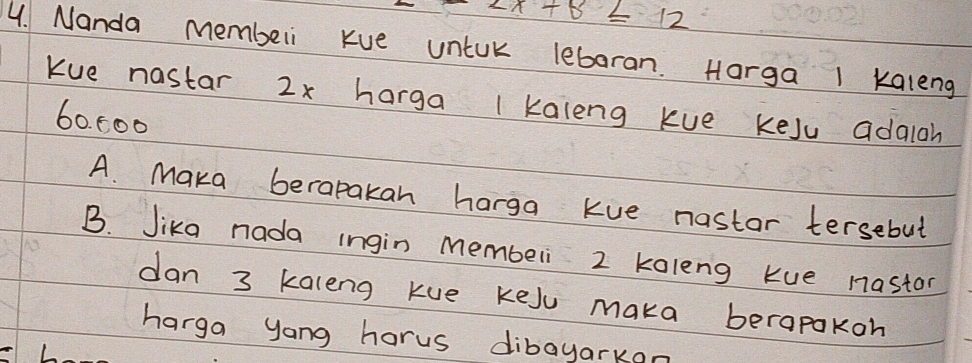 2x + 8 ≤ 12
4. Nanda membeli kue untuk lebaran. Harga 1 kaleng
kue nastar 2x harga 1 kaleng kue keju adalah
60.000
A. Maka berapakah harga kue nastar tersebut
B. Jika nada ingin membeli 2 kaleng kue nastar
dan 3 kaleng kue keju maka berapakah
harga yang harus dibayarkan